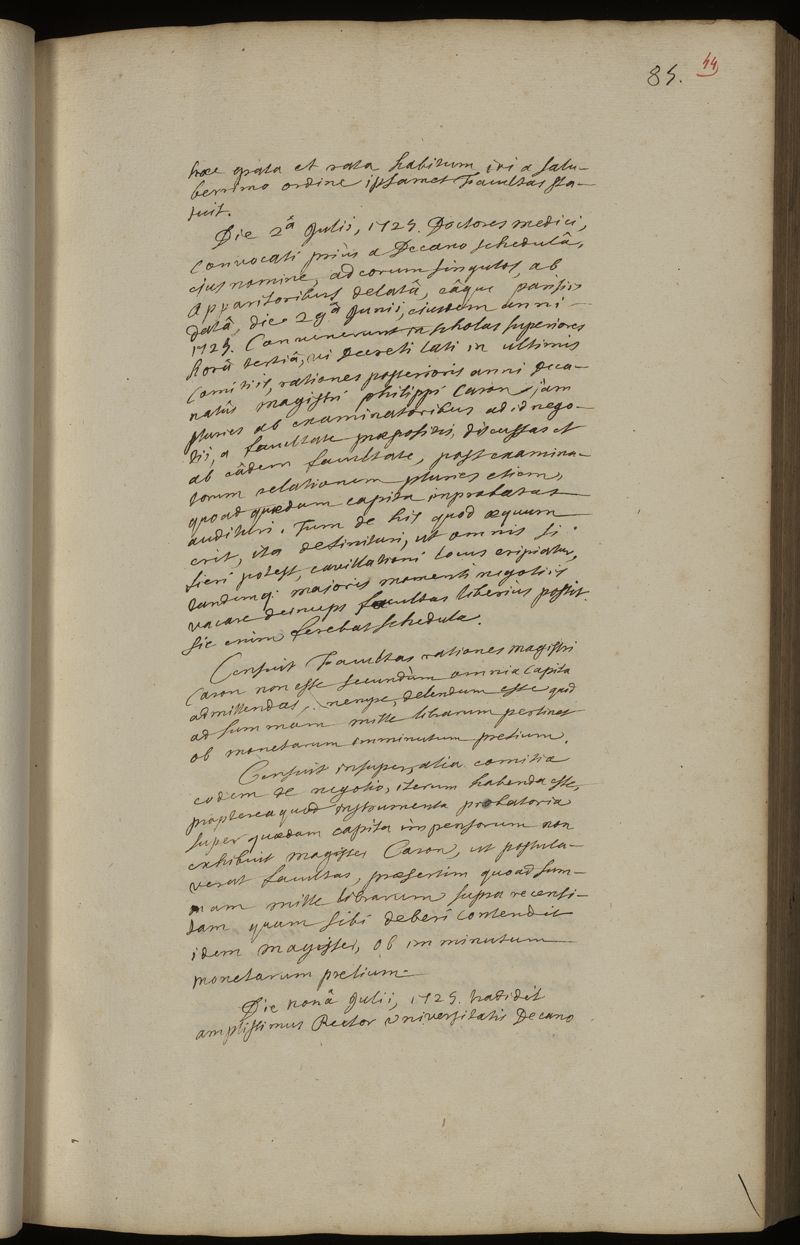 85. 44
hæc grata et rata habitum iri a salu-
berrimo ordine ipsamet Facultas sta-
tuit.
Die 2ª Julii, 1725. Doctores medici,
convocati priùs a Decano schedulâ,
ejus nomine, ad eorum singulos, ab
Apparitoribus delatâ, eâque parisiis
datâ, die 29ª Junii, ejusdem anni
1725. Convenerunt in scholas superiores
horâ tertiâ, vi decreti lati in ultimis
Comitiis, rationes posterioris anni deca-
natûs magistri philippi Caron, jam
pluries ab examinatoribus ad id nego-
tii, a facultate præpositis, discussas et
ab eâdem facultate, post examina-
torum relationum pluries etiam,
quoad quædam capita improbatas
audituri. Tum de his quod æquum
erit, ita definituri, ut omnis si
fieri potest, cavillationi locus eripiatur,
tandemq: majoris momenti negotiis
vacare deinceps facultas liberius possit.
Sic enim ferebat schedula.
Censuit Facultas rationes magistri
Caron non esse secundùm omnia capita
admittendas, nempe, delendum esse quod
ad summam mille librarum pertinet
ob monetarum imminutum pretium.
Censuit insuper, alia comitia
eodem de negotio, iterum habenda esse,
propterea quod instrumenta probatoria
super quædam capita impensorum non
exhibuit magister Caron, ut postula-
verat facultas, præsertim quoad sum-
mam mille librarum supra recensi-
tam quam sibi deberi contendit
idem magister, ob imminutum
monetarum pretium.
Die nonâ Julii, 1725. tradidit
amplissimus Rector Universitatis Decano